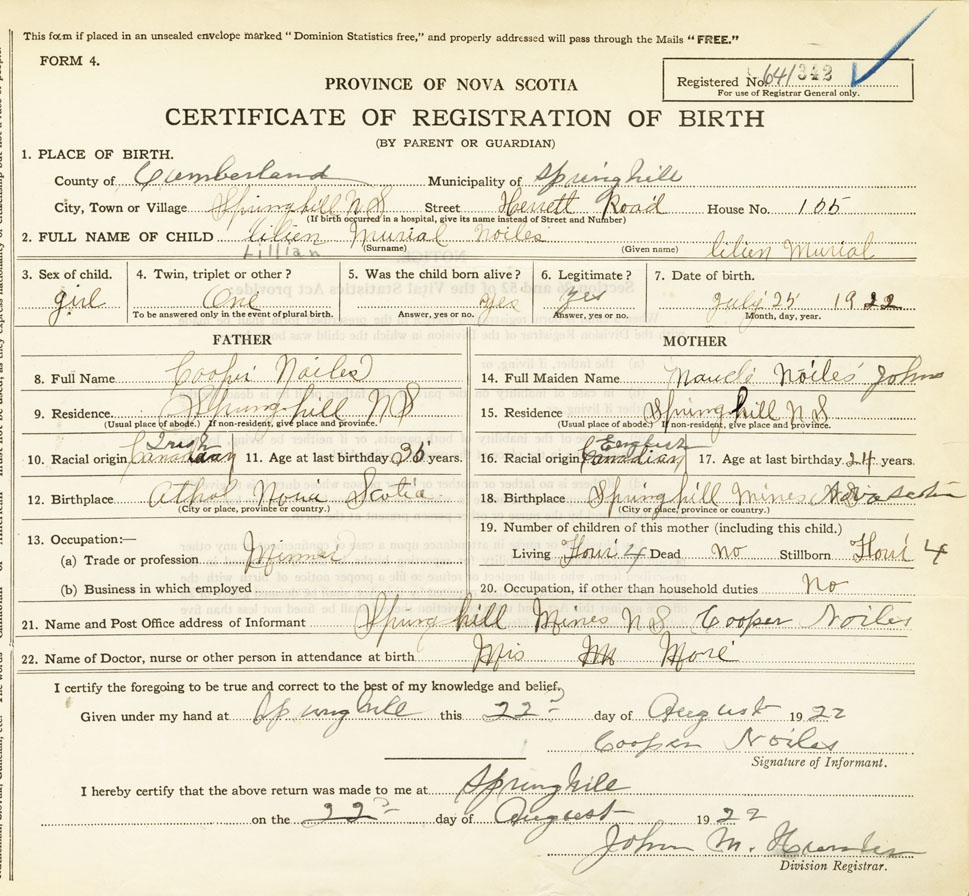 This form if placed in an unsealed envelope marked "Dominion Statistics free," and properly addressed will pass through the Mails "FREE."
FORM 4.
Registered No. 641342
For use of Registrar General only.
PROVINCE OF NOVA SCOTIA
CERTIFICATE OF REGISTRATION OF BIRTH
(BY PARENT OR GUARDIAN)
1. PLACE OF BIRTH.
County of Cumberland Municipality of Springhill
City, Town or Village Springhill N S Street Herrett Road House No. 105
(If birth occurred in a hospital, give its name instead of Street and Number)
2. FULL NAME OF CHILD lilien Murial Noiles lilien Murial
Lillian (Surname) (Given name)
3. Sex of child. 4. Twin, triplet or other? 5. Was the child born alive? 6. Legitimate? 7. Date of birth.
girl One yes yes July 25 1922
To be answered only in the event of plural birth. Answer, yes or no. Answer, yes or no. Month, day, year.
FATHER MOTHER
8. Full Name Cooper Noiles 14. Full Maiden Name Maude Noiles Johns
9. Residence. Springhill N S 15. Residence Springhill N S
(Usual place of abode.) If non-resident, give place and province. (Usual place of abode.) If non-resident, give place and province.
Irish English
10. Racial origin Canadian 11. Age at last birthday 36 years. 16. Racial origin Canadian 17. Age at last birthday 24 years.
12. Birthplace Athol Nova Scotia 18. Birthplace Springhill Mines Nova Scotia
(City or place, province or country.) (City or place, province or country.)
13. Occupation:— 19. Number of children of this mother (including this child.)
(a) Trade or profession Living Four 4 Dead no Stillborn Four 4
(b) Business in which employed 20. Occupation, if other than household duties No
21. Name and Post Office address of Informant Springhill Mines N S Cooper Noiles
22. Name of Doctor, nurse or other person in attendance at birth Mrs
I certify the foregoing to be true and correct to the best of my knowledge and belief,
Given under my hand at Springhill this 22 day of August 1922
Cooper Noiles
Signature of Informant.
I hereby certify that the above return was made to me at Springhill
on the 22 day of August 1922
John M.
Division Registrar.